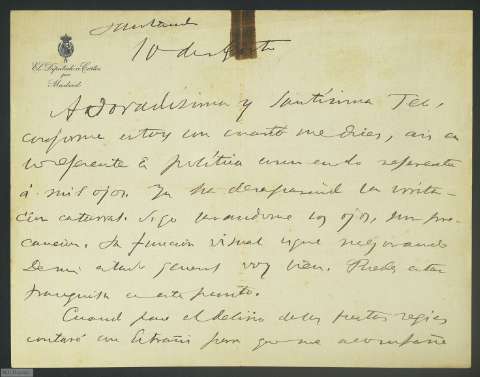 Santander
10 de Agosto
El Diputado a Cortes
por
Madrid
Adoradísima y Santísima Teo,
conforme estoy con cuanto me dices, asi en
lo referente á política como en lo referente
á mis ojos. Ya ha desaparecido la irrita-
ción catarral. Sigo lavandome los ojos, con pre-
caucion. La función visual sigue mejorando
De mi estado general voy bien. Puedes estar
tranquila en este punto.
Cuando pase el delirio de las fiestas regias
contaré con Estrañi para que me acompañe